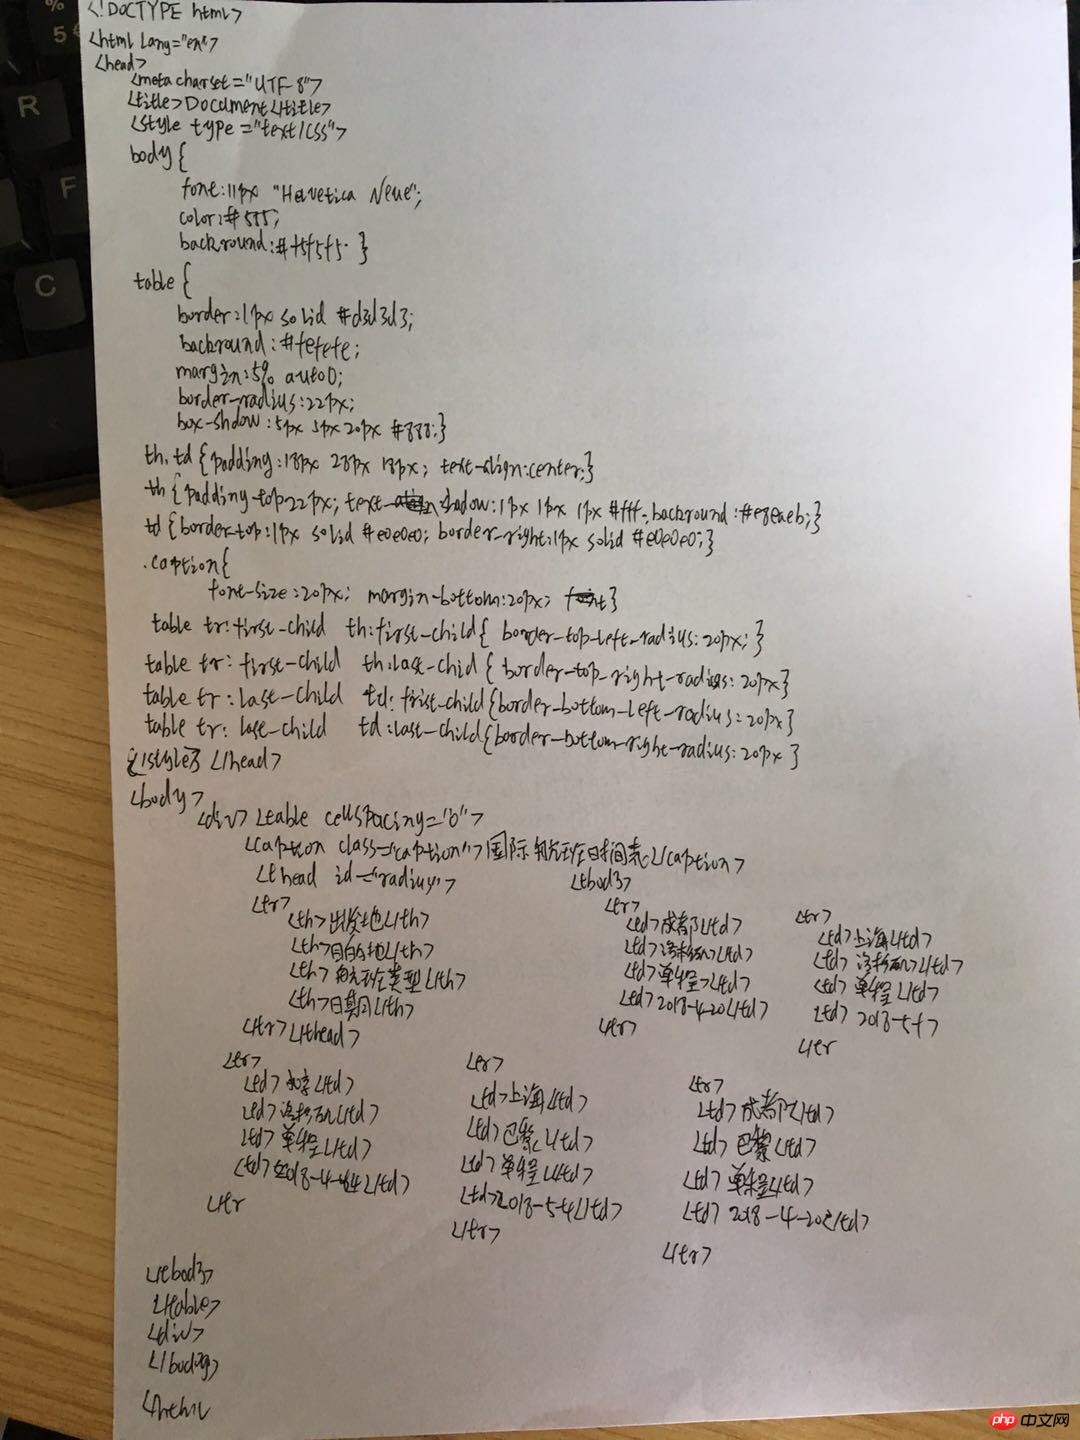 <!DOCTYPE html>
<html lang="en">
<head>
<meta charset="UTF-8">
<title>Document</title>
<style type="text/css">
body {
font:11px "Helvetica Neue";
color:#555;
background:#f5f5f5. }
table {
border:1px solid #d3d3d3;
background:#fefefe;
margin:5% auto0;
border-radius:22px;
box-shdow:5px 5px 20px #888;}
th,td {padding:18px 28px 18px; text-align:center;}
th {padding-top22px; text-shadow:1px 1px 1px #fff;background:#e8eaeb;}
td {border-top:1px solid #e0e0e0; border-right:1px solid #e0e0e0;}
.caption{
font-size:20px; margin-bottom:20px; }
table tr:first-child th:first-child{ border-top-left-radius:20px; }
table tr: first-child th:last-chid { border-top-right-radius: 20px}
table tr:last-child td:frist-child{border-bottom-left-radius:20px}
table tr: last-child td:last-child{border-bottom-right-radius:20px }
</style> </head>
<body>
<div> <table cellspacing="0">
<caption class="caption">国际航班时间表</caption>
<thead id="radiuy">
<tr>
<th>出发地</th>
<th>目的地</th>
<th>航班类型</th>
<th>日期</th>
</tr></thead>
<tbody>
<tr>
<td>成都</td>
<td>洛杉矶</td>
<td>单程</td>
<td>2018-4-20</td>
</tr>
<tr>
<td>上海</td>
<td>洛杉矶</td>
<td>单程</td>
<td>2018-5-
</tr
<tr>
<td></td>
<td>洛杉矶</td>
<td>单程</td>
<td></td>
</tr
<tr>
<td>上海</td>
<td>巴黎</td>
<td>单程</td>
<td>2018-5-4</td>
</tr>
<tr>
<td>成都</td>
<td>巴黎</td>
<td>单程</td>
<td>2018-4-20</td>
</tr>
</tbody>
</table>
<div>
</body>
</html
php 中文网